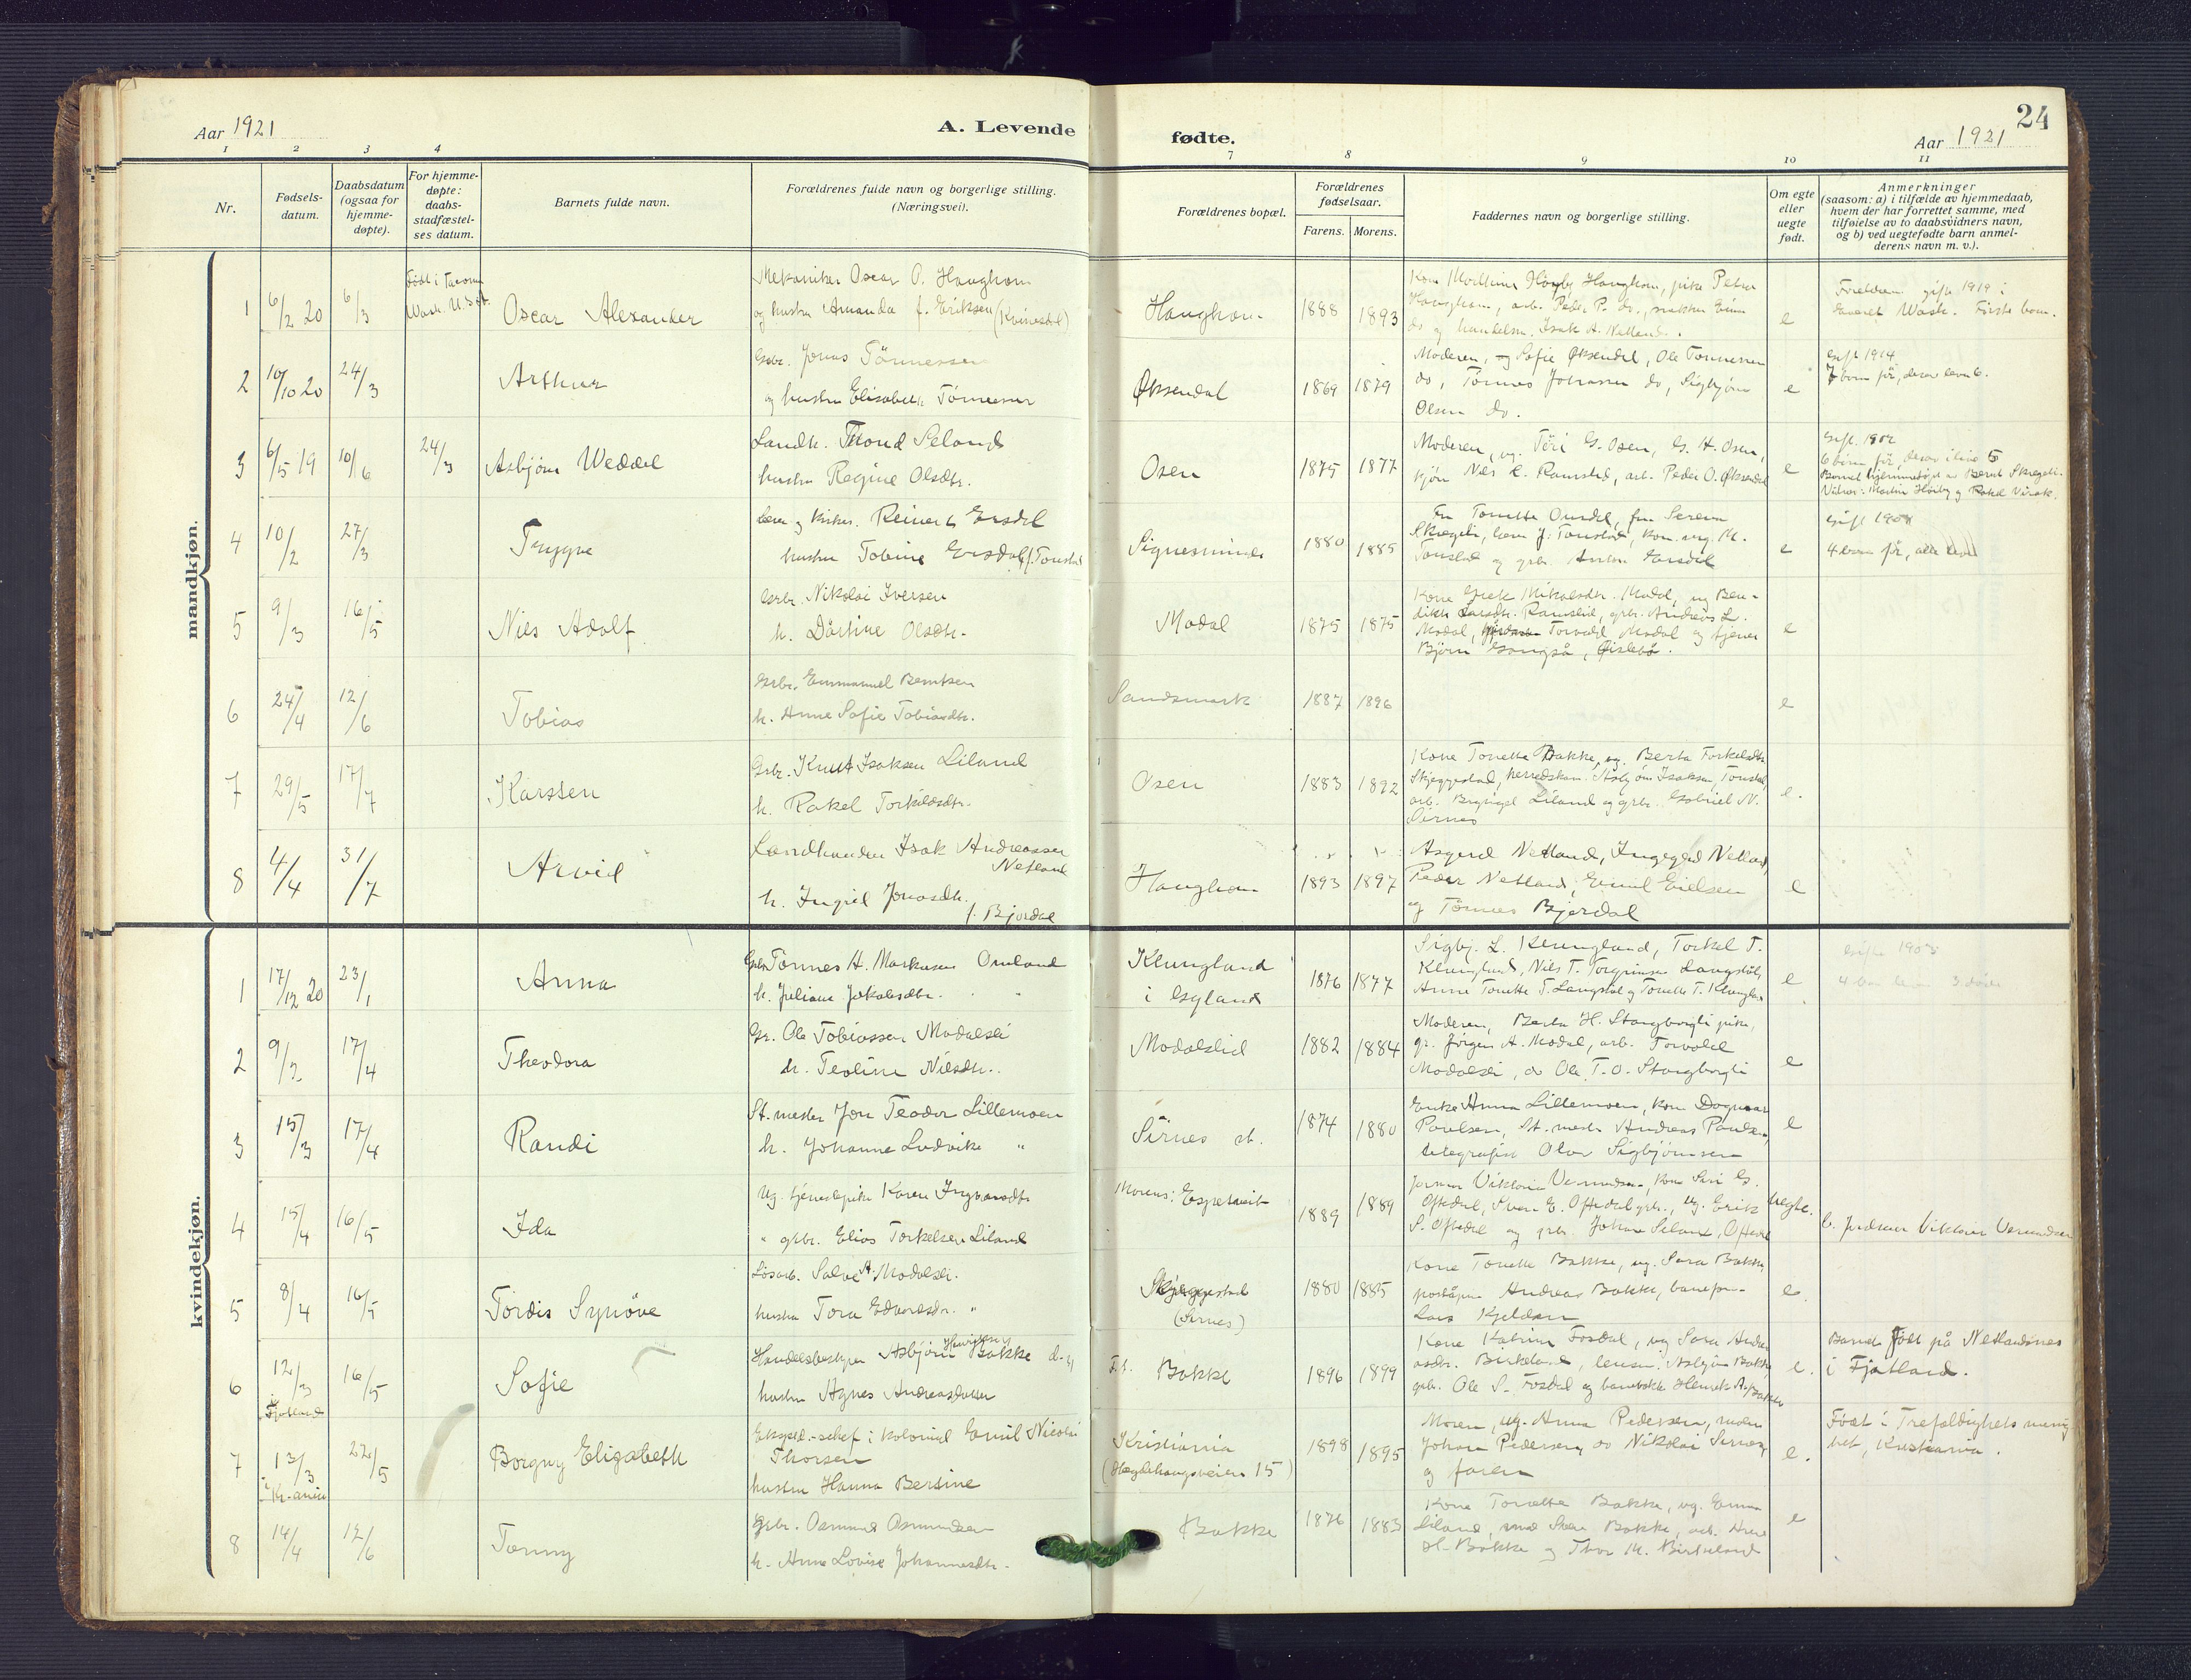 24
Aar 1921
A. Levende
fødte.
Aar 1921
1 2 3 4 7 8 9 10 11
Nr.
Fødsels-
datum.
Daabsdatum
(ogsaa for
hjemme-
døpte).
For hjemme-
døpte:
daabs-
stadfæstel-
ses datum.
Barnets fulde navn.
Forældrenes fulde navn og borgerlige stilling.
(Næringsvei).
Forældrenes bopæl.
Forældrenes
fødselsaar.
Farens. Morens.
Faddernes navn og borgerlige stilling.
Om egte
eller
uegte
født.
Anmerkninger
(saasom: a) i tilfælde av hjemmedaab,
hvem der har forrettet samme, med
tilføielse av to daabsvidners navn,
og b) ved uegtefødte barn anmel-
derens navn m. v.).
mandkjøn.
1 6/2 20 6/3
Født i
Wash. U.S.A.
Oscar Alexander
Mekaniker Oscar O. Haughom
og hustru Amanda f. Eriksen (Kvinesdal)
Haughom
1888 1893
e
Forældrene gift 1919 i
Everet Wash. Første barn.
2 10/10 20 24/3
Arthur
Grbr. Jonas Tönnessen
og hustru Elisabeth Tönnessen
Øksendal
1869 1879
Moderen, og Sofie Øksendal, Ole Tönnessen
do, Tönnes Johansen do, Sigbjörn
Olsen do.
e
Gift 1914
7 börn för, derav lever 6.
3 6/5 19 10/6 24/3
Asbjörn Weddel
Landh. Thond Seland
hustru Regine Olsdtr.
Osen
1875 1877
Moderen, ug. Téri G. Osen, G. H. Osen,
Nils E. Ramslid, arb. Peder O. Øksendal
e
Gift 1902
6 börn för, derav i live 5
Barnet hjemmedøpt av Bernt Skregeli.
Vidner: Martin Høiby og Rakel Virak.
4 10/2 27/3
Trygve
Lærer og kirkes. Reinert Ersdal
hustru Tobine Ersdal f. Tonstad
Signesminde
1880 1885
Fru Tonette Ousdal, fru Serena
Skregeli, lærer J. Tonstad, kom. ug. M.
Tonstad og grbr. Anton Ersdal
e
4 barn för, alle lever
5 9/3 16/5
Nils Adolf
Grbr. Nikolai Iversen
h. Dortine Olsdtr.
Modal
1875 1875
Kone Grete Mikalsdtr. Modal, ug Ben-
dikte Larsdtr. Ramslid, grbr. Andreas L.
Modal, Torvald Modal og tjener
Björn
e
6 24/4 12/6
Tobias
Grbr. Emmanuel Berntsen
h. Anne Sofie Tobiasdtr.
Sandsmark
1887 1896
e
7 29/5 17/7
Karsten
Grbr. Knut Isaksen Liland
h. Rakel Torkildsdtr.
Osen
1883 1892
Kone Tonette Bakke, ug. Berta Torkildsdtr.
Skjeggestad, herredskas. Asbjörn Isaksen Tonstad,
arb. Liland og grbr. Gabriel N.
Sirnes
e.
8 4/4 31/7
Arvid
Landhandler Isak Andreassen
Netland
h. Ingrid Jonasdtr.
f. Bjordal
Haughom
1893 1897
Asgerd Netland, Ingegerd Netland,
Peder Netland, Emil Eielsen
og Tönnes Bjordal
e
kvindekjøn.
1 17/12 20 23/1
Anna
Grbr. Tönnes H. Markussen Omland
h. Juliane Jakobsdtr.
Klungland
i Gyland
1876 1877
Sigbj. L. Klungland, Torkel T.
Klungland, Nils T. Torgrimsen Langstöl,
Anne Tonette T. Langstöl og Tonette T. Klungland
e
2 9/2 17/4
Theodora
Gr. Ole Tobiassen Modalsli
h. Teoline Nilsdtr.
Modalslid
1882 1884
Moderen, Berta H. Stangborgli pike,
gr. Jörgen A. Modal, arb. Torvald
Modalsli, do Ole T. O. Stangborgli
e
3 15/3 17/4
Randi
St. mester Jon Teodor Lillemoen
h. Johanne Ludvike "
Sirnes st.
1874 1880
Enke Anna Lillemoen, kone Dagmar
Paulsen, St. mester Andreas Paulsen,
telegrafist Olav Sigbjörnsen
e
4 15/4 16/5
Ida
Ug. tjenestepike Karen Ingvarsdtr.
" grbr. Elias Torkelsen Liland
Morens: Espetveit
1889 1889
Jormor Viktoria Vermundsen, kone Siri G.
Oftedal, Sven E. Oftedal grbr., ug. Erik
S. Oftedal og grbr. Johan Seland, Oftedal
uegte.
b. Jordmor Viktoria Vermundsen
5 8/4 16/5
Tordis Synöve
Lösarb. Salve A. Modalsli.
hustru Tora Edvardsdtr. "
Skjeggestad
(Sirnes)
1880 1885
Kone Tonette Bakke, ug. Sara Bakke,
poståpner Andreas Bakke, banefor-
Lars Kjeldsen
e.
6 12/3
i Fjotland
16/5
Sofie
Handelsbestyrer Asbjörn Henriksen Bakke d. y.
hustru Agnes Andreasdatter
F.t. Bakke
1896 1899
Kone Katrine Fosdal, ug Sara Andre-
asdtr. Birkeland, lensm. Asbjörn Bakke,
grbr. Ole S. Fosdal og banevokter Henrik A. Bakke
e.
Barnet født på Netlandsnes
i Fjotland.
7 13/3
i Kr-ania
22/5
Borgny Elisabeth
Eksped.-schef i kolonial Emil Nicolai
Thorsen
hustru Hanna Bertine
Kristiania
(Hegdehaugsveien 15)
1898 1895
Moren, ug. Anna Pedersen, maler
Johan Pedersen, do Nikolai Sirnes,
og faren
e.
Født i Trefoldighets menig-
het, Kristiania.
8 14/4 12/6
Tenny
Grbr. Osmund Osmundsen
h. Anne Lovise Johannesdtr.
Bakke
1876 1883
Kone Tonette Bakke, ug. Emma
Liland, Bakke, arb. Arne
H. Bakke og Thor M. Birkeland
e